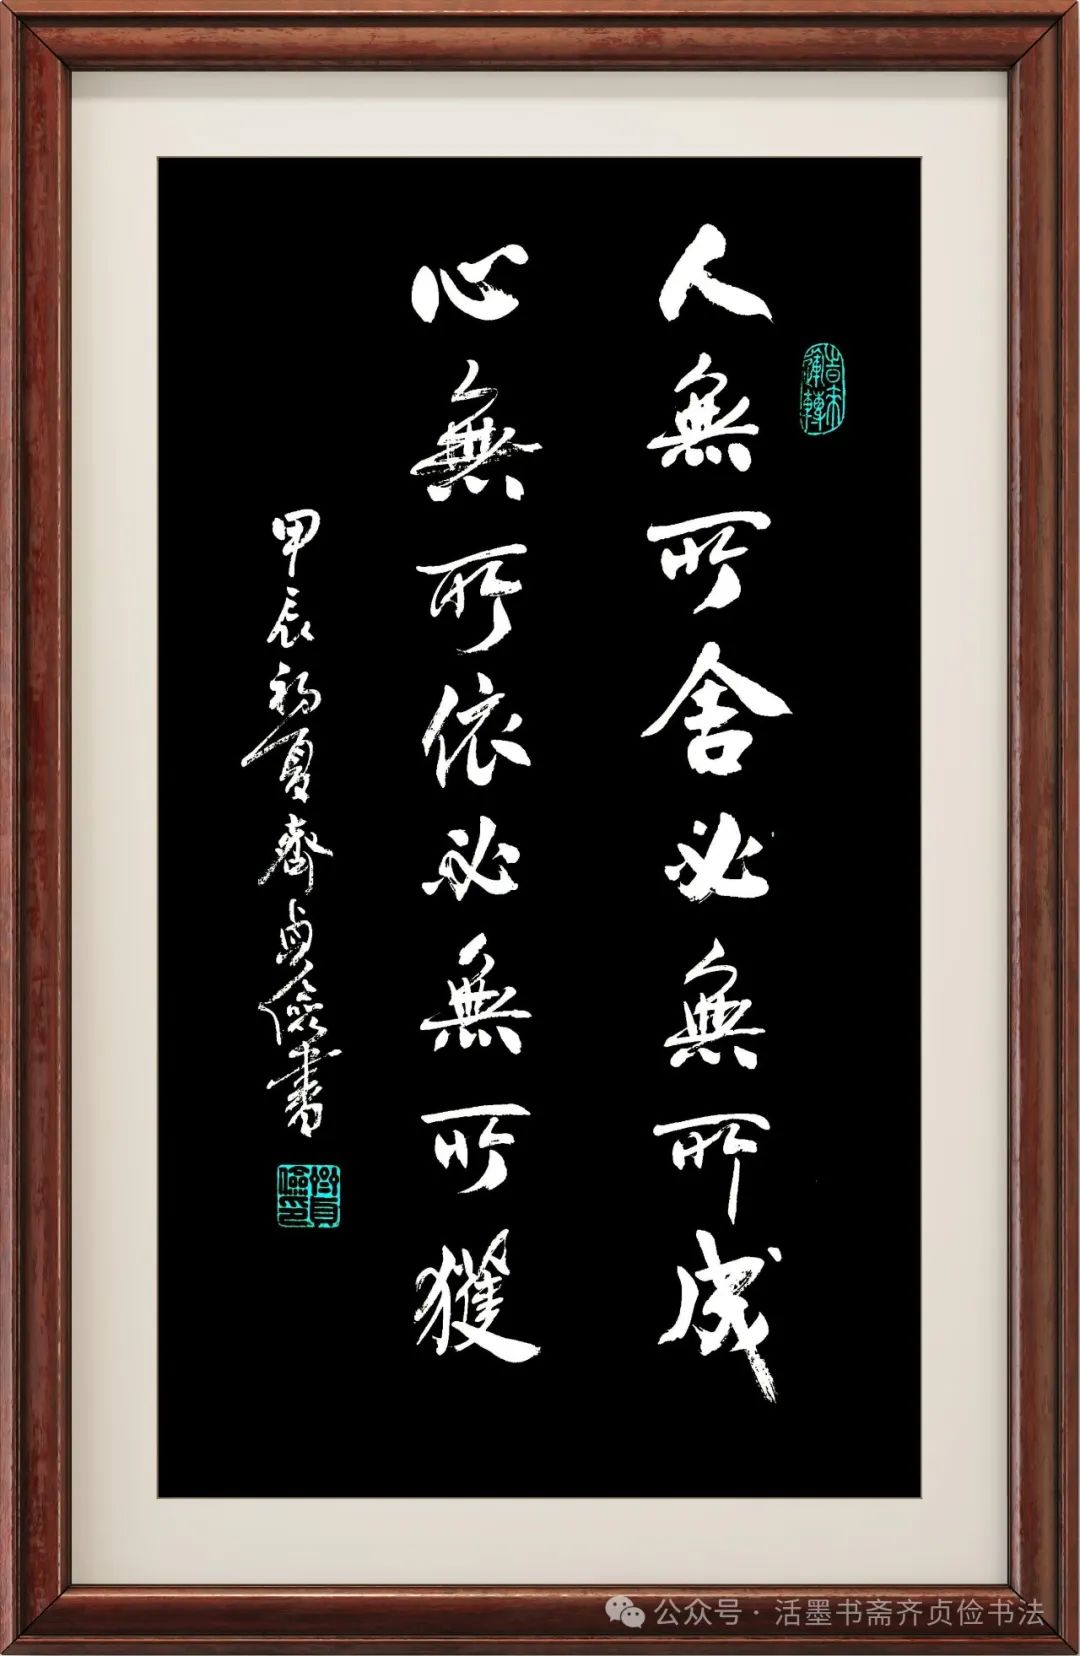 人無所舍必無所成
心無所依必無所獲
甲辰初夏齊貞儉書
公众号·活墨书斋齐贞俭书法